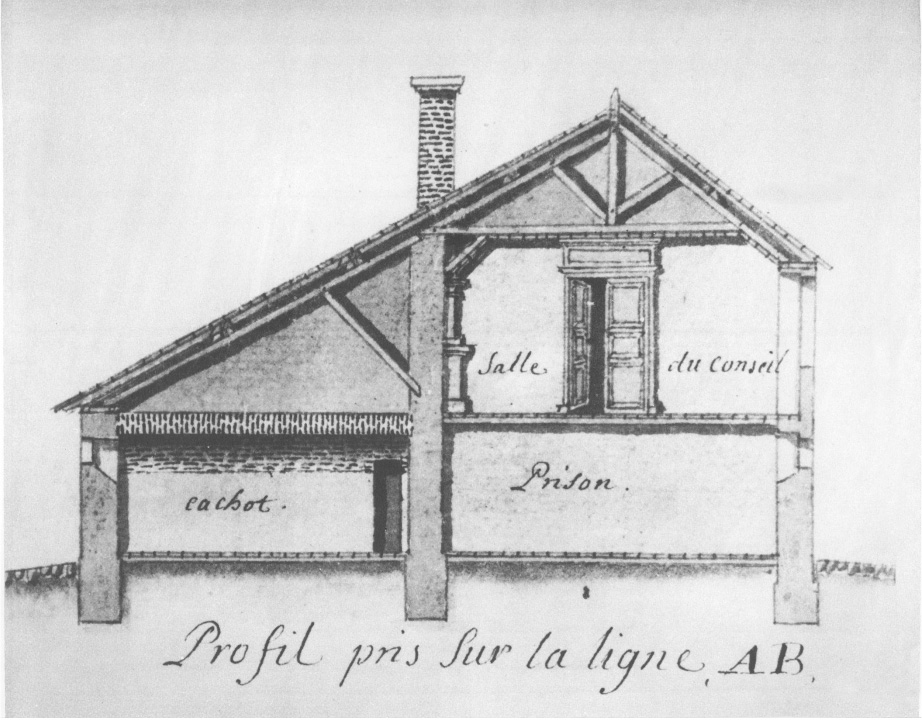 Salle du Conseil
Prison.
cachot.
Profil pris sur la ligne AB.